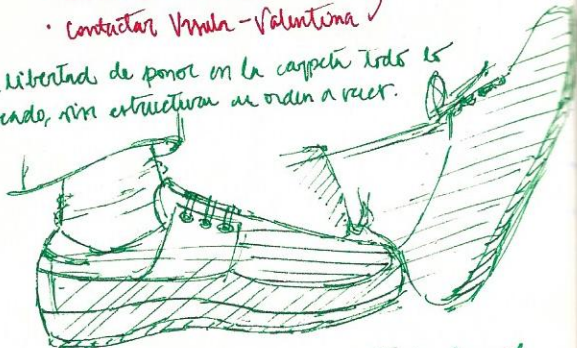 · contactar Ursula - Valentina ✓
libertad de poner en la carpeta todo lo
sin estructurar un orden a